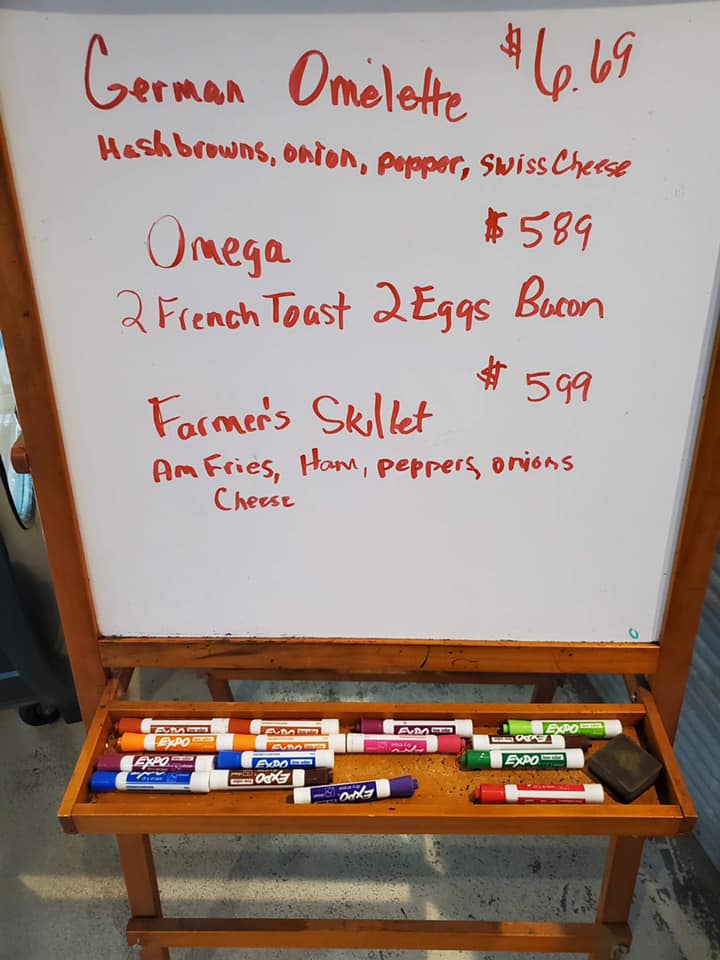 German Omelette $6.69
Hashbrowns, onion, pepper, swiss Cheese
Omega $589
2 French Toast 2 Eggs Bacon
Farmer's Skillet $599
Am Fries, Ham, peppers, onions
Cheese
EXPO
EXPO
EXPO
EXPO
EXPO
EXPO
EXPO
EXPO
EXPO
EXPO
EXPO
EXPO
EXPO
EXPO